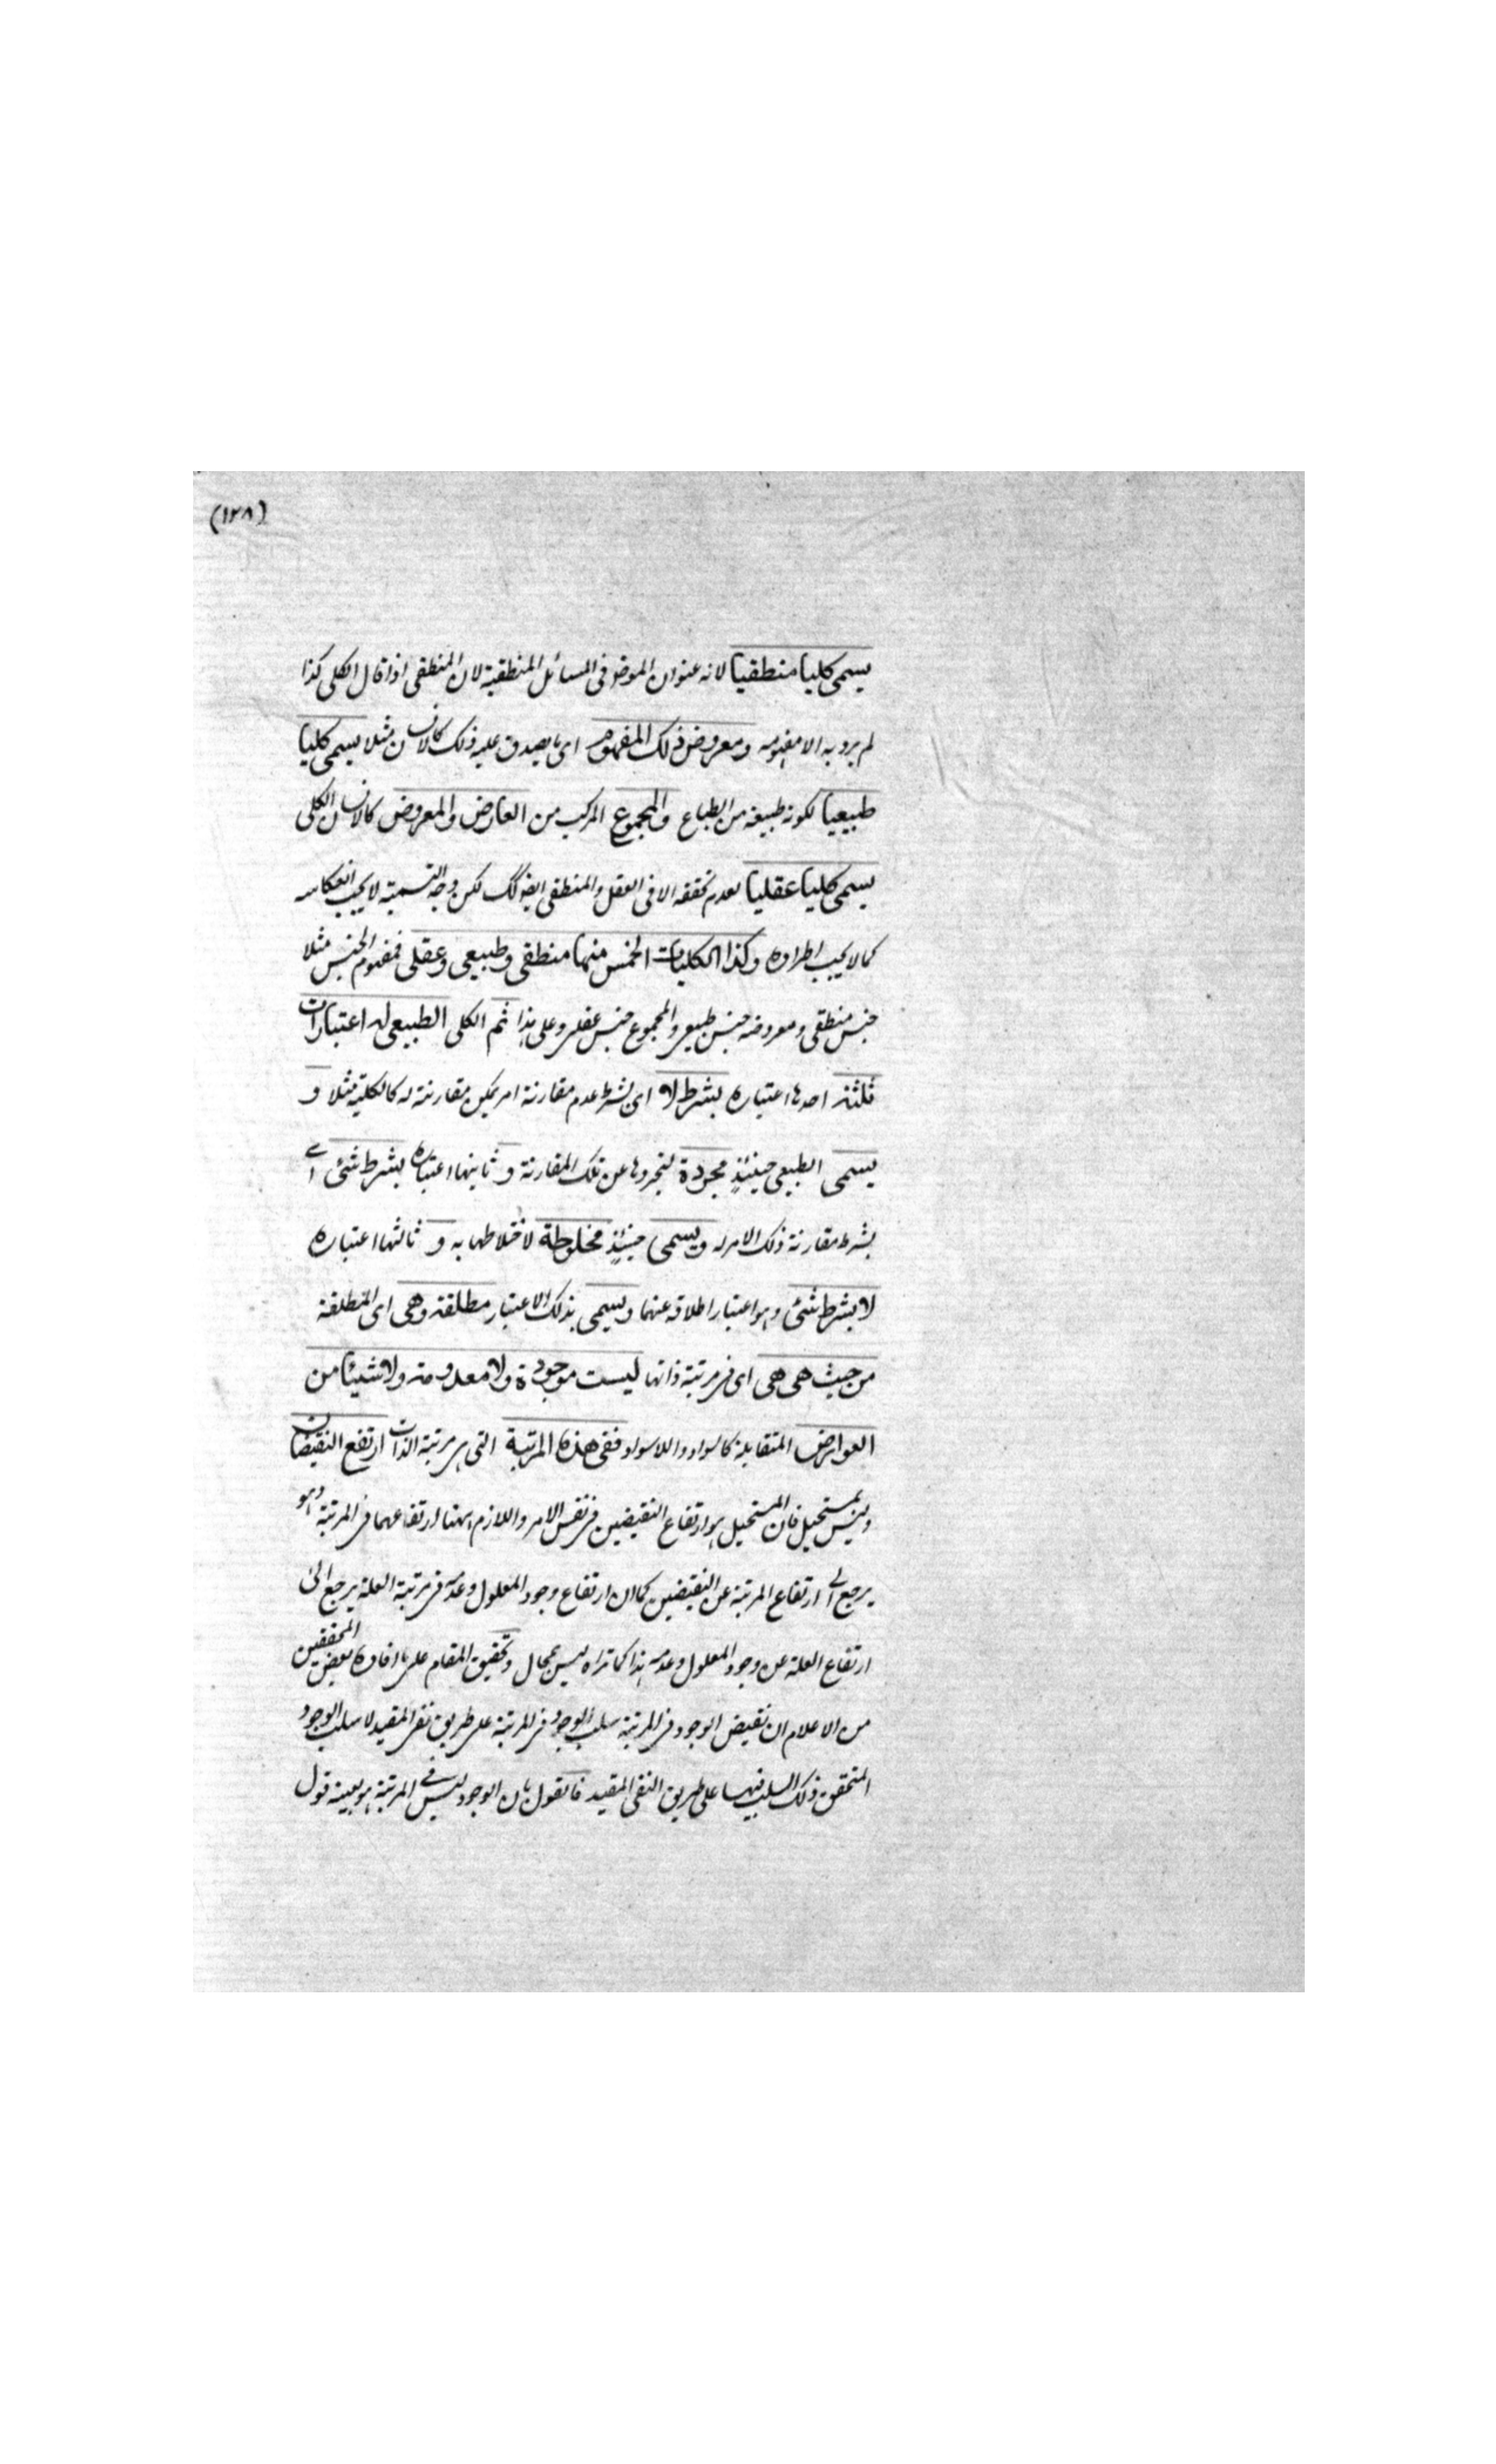 (١٢٨)
يسمى كليا منطقيا لانه عنوان الموضوع فى المسائل المنطقية لان المنطقى اذا قال الكلى كذا
لم يرد به الا مفهومه ومعروض ذلك المفهوم اى ما يصدق عليه ذلك كالانسان مثلا يسمى كليا
طبيعيا لكونه طبيعة من الطباع والمجموع المركب من العارض والمعروض كالانسان الكلى
يسمى كليا عقليا لعدم تحققه الا فى العقل والمنطقى ايضا كذلك لكن وجه التسمية لا يجب انعكاسه
كما لا يجب اطراده وكذا الكليات الخمس منها منطقى وطبيعى وعقلى فمفهوم الجنس مثلا
جنس منطقى ومعروضه جنس طبيعى والمجموع جنس عقلى وعلى هذا ثم الكلى الطبيعى له اعتبارات
ثلثة احدها اعتباره بشرط لا اى بشرط عدم مقارنة امر يمكن مقارنته له كالكلية مثلا و
يسمى الطبيعى حينئذ مجردة لتجردها عن تلك المقارنة و ثانيها اعتباره بشرط شئ اى
بشرط مقارنة ذلك الامر له ويسمى حينئذ مخلوطة لاختلاطها به و ثالثها اعتباره
لا بشرط شئ وهو اعتبار اطلاقه عنهما ويسمى بذلك الاعتبار مطلقة وهى اى المطلقة
من حيث هى هى اى فى مرتبة ذاتها ليست موجودة ولا معدومة ولا شيئا من
العوارض المتقابلة كالسواد واللاسواد ففى هذه المرتبة التى هى مرتبة الذات ارتفع النقيضان
وليس بمستحيل فان المستحيل هو ارتفاع النقيضين فى نفس الامر واللازم ههنا ارتفاعهما فى المرتبة وهو
يرجع الى ارتفاع المرتبة عن النقيضين كما ان ارتفاع وجود المعلول وعدمه فى مرتبة العلة يرجع الى
ارتفاع العلة عن وجود المعلول وعدمه هذا كما تراه ليس بمحال وتحقيق المقام على ما افاده بعض المحققين
من الاعلام ان نقيض الوجود فى المرتبة سلب الوجود فى المرتبة على طريق نفى المقيد لا سلب الوجود
المتحقق ذلك السلب فيها على طريق النفى المقيد فالقول بان الوجود ليس فى المرتبة هو بعينه قول